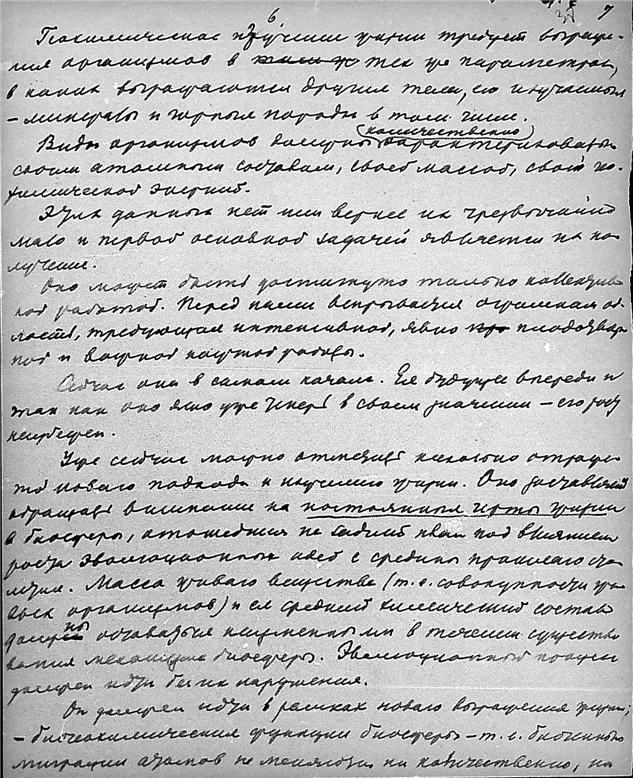 6
7
Геохимическое изучение жизни требует выраже-
ния организмов в тех же параметрах,
в каких выражаются другия тела, ею изучаемыя
– минералы и горныя породы в том числе.
Виды организмов должны (количественно) характеризоваться
своим атомным составом, своей массой, своей гео-
химической энергией.
Этих данных нет или вернее их чрезвычайно
мало и первой основной задачей является их по-
лучение.
Оно может быть достигнуто только коллектив-
ной работой. Перед нами вскрывается огромная об-
ласть, требующая интенсивной, явно плодотвор-
ной и важной научной работы.
Сейчас они в самом начале. Ее будущее впереди и
так как оно ясно уже теперь в своем значении – его рост
неизбежен.
Уже сейчас можно отметить несколько отраже-
ний новаго подхода к изучению жизни. Оно заставляет
обращать внимание на постоянныя черты жизни
в биосфере, отошедшия на задний план под влиянием
роста эволюционных идей с средины прошлаго сто-
летия. Масса живаго вещества (т.е. совокупности жи-
вых организмов) и ея средний химический состав
должны оставаться неизменными в течении существо-
вания механизма биосферы. Эволюционный процесс
должен идти без их нарушения.
Он должен идти в рамках новаго выражения жизни;
– биогеохимическия функции биосферы – т.е. биогенныя
миграции атомов не менялись ни количественно, ни